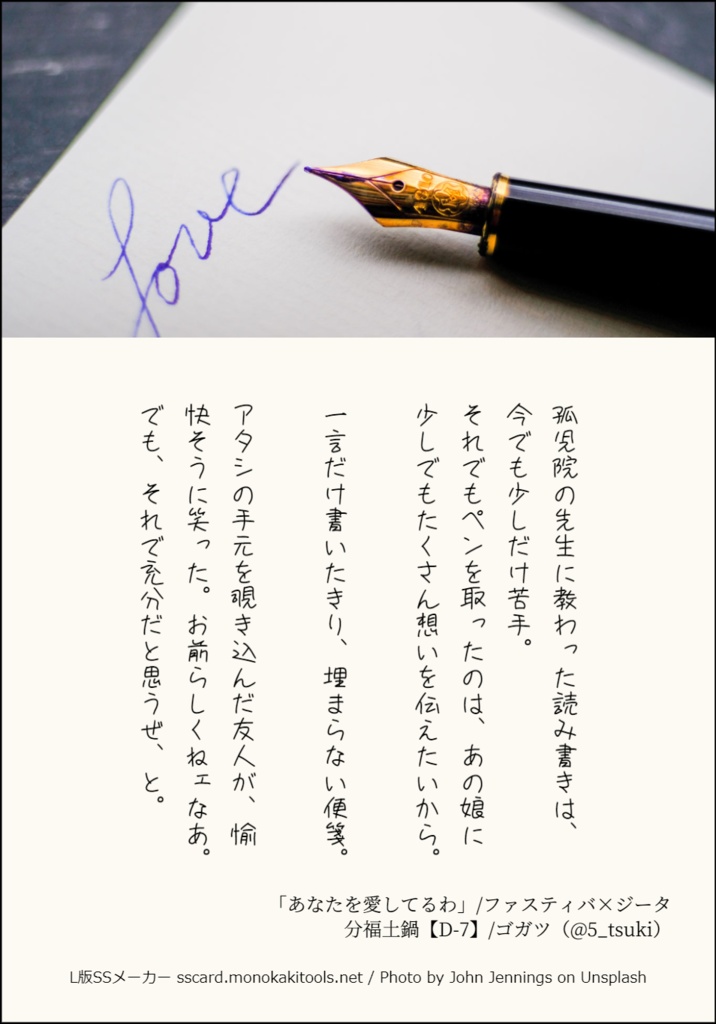 love
孤児院の先生に教わった読み書きは、
今でも少しだけ苦手。
それでもペンを取ったのは、あの娘に
少しでもたくさん想いを伝えたいから。
一言だけ書いたきり、埋まらない便箋。
アタシの手元を覗き込んだ友人が、愉
快そうに笑った。お前らしくねェなあ。
でも、それで充分だと思うぜ、と。
「あなたを愛してるわ」/ファスティバ×ジータ
分福土鍋【D-7】/ゴガツ（@5_tsuki）
L版SSメーカー sscard.monokakitools.net / Photo by John Jennings on Unsplash